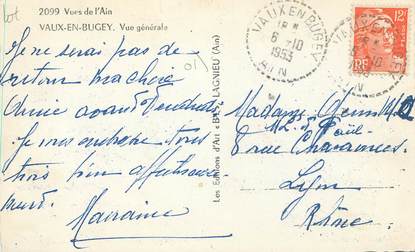 2099 Vues de l'Ain
VAUX-EN-BUGEY. Vue générale
Je ne serai pas de
retour ma chère
amie avant Vendredi
Je vous embrasse tous
trois bien affectueuse
ment.
Marraine
Les Editions d'Art LAGNIEU (Ain)
VAUX EN BUGEY
6-10
1953
AIN
12F
RF
Madame
rue
Lyon
Rhône